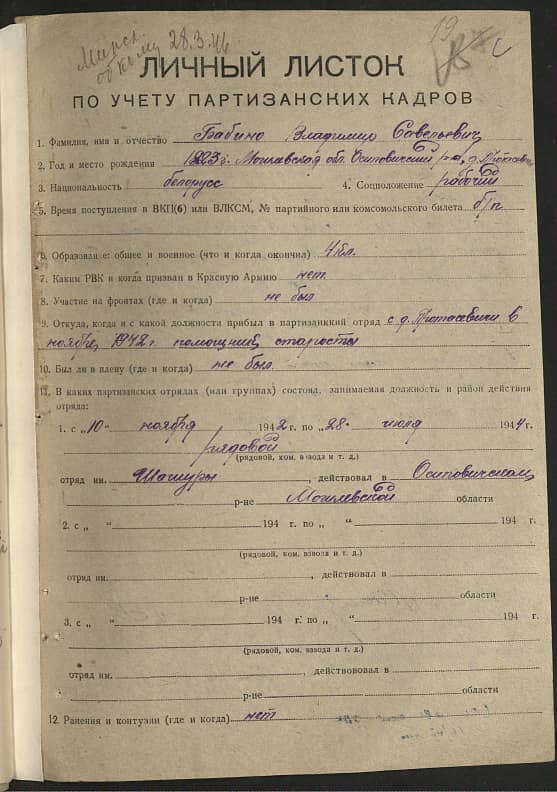 28.3.46
19
ЛИЧНЫЙ ЛИСТОК
ПО УЧЕТУ ПАРТИЗАНСКИХ КАДРОВ
1. Фамилия, имя и отчество Бабино Владимир Савельевич
2. Год и место рождения 1883 г. Могилевская обл. Осиповичский р-н, д. Протасевичи
3. Национальность белорусс 4. Соцположение рабочий
5. Время поступления в ВКП(б) или ВЛКСМ, № партийного или комсомольского билета б/п
6. Образование: общее и военное (что и когда окончил) 4 кл.
7. Каким РВК и когда призван в Красную Армию нет
8. Участие на фронтах (где и когда) не был
9. Откуда, когда и с какой должности прибыл в партизанский отряд с д. Протасевичи в
ноябре 1942 г. помощник старосты
10. Был ли в плену (где и когда) не был.
11. В каких партизанских отрядах (или группах) состоял, занимаемая должность и район действия
отряда:
1. с „10“ ноября 1942 г. по „28“ июля 1944 г.
рядовой
(рядовой, ком. взвода и т. д.)
отряд им. Шашуры, действовал в Осиповичском
р-не Могилевской области
2. с „ “ 194 г. по „ “ 194 г.
(рядовой, ком. взвода и т. д.)
отряд им. , действовал в
р-не области
3. с „ “ 194 г. по „ “ 194 г.
(рядовой, ком. взвода и т. д.)
отряд им. , действовал в
р-не области
12. Ранения и контузии (где и когда) нет